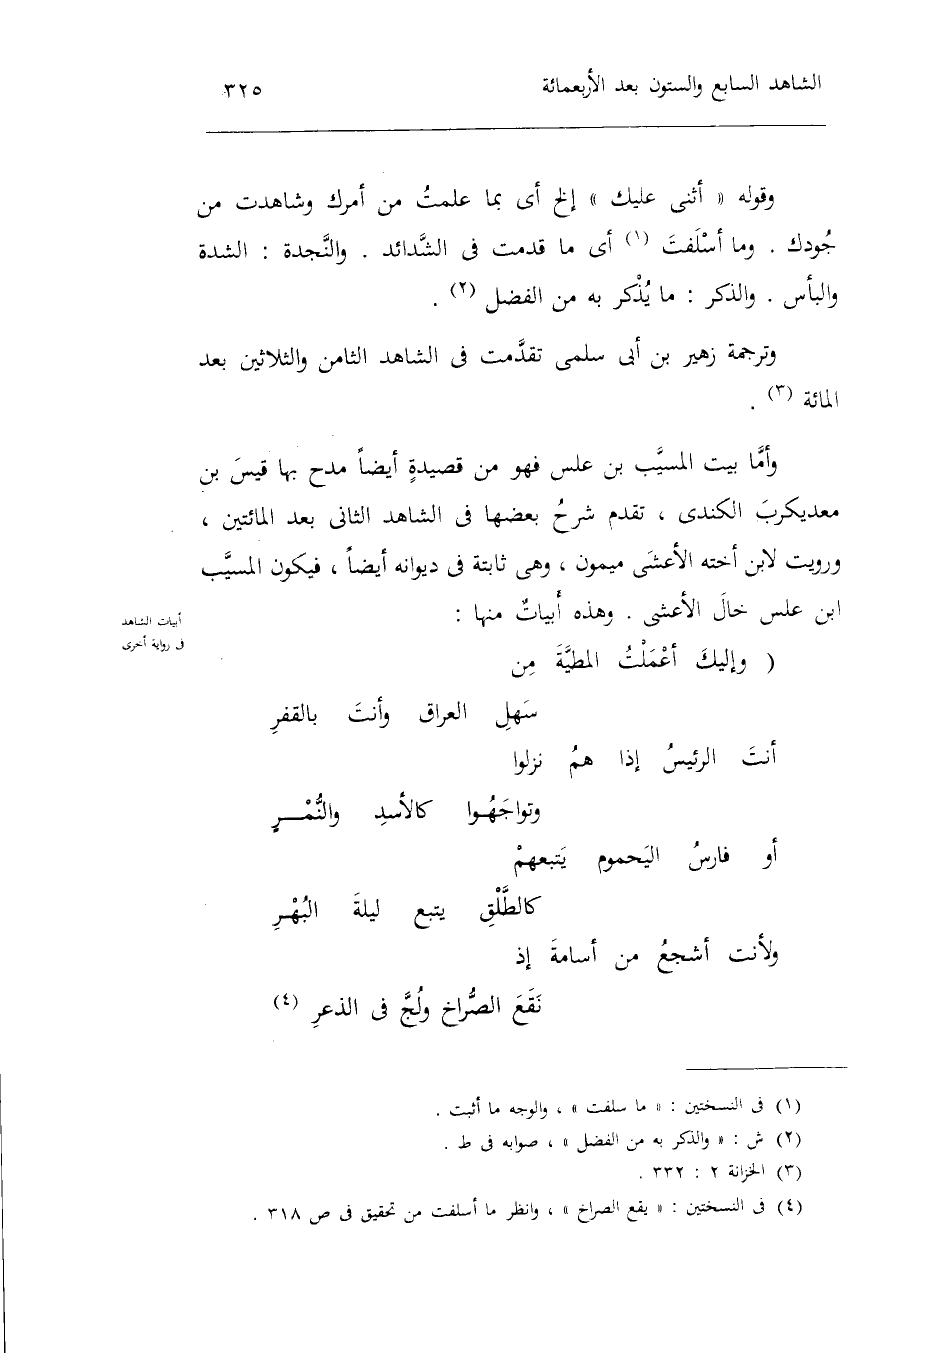 الشاهد السابع والستون بعد الأربعمائة ٣٢٥
وقوله « أثنى عليك » إلخ أى بما علمتُ من أمرك وشاهدت من
جُودك . وما أسْلَفتَ (١) أى ما قدمت فى الشَّدائد . والنَّجدة : الشدة
والبأس . والذكر : ما يُذْكر به من الفضل (٢) .
وترجمة زهير بن أبى سلمى تقدَّمت فى الشاهد الثامن والثلاثين بعد
المائة (٣) .
وأمَّا بيت المسيَّب بن علس فهو من قصيدةٍ أيضاً مدح بها قيسَ بن
معديكربَ الكندى ، تقدم شرحُ بعضها فى الشاهد الثانى بعد المائتين ،
ورويت لابن أخته الأعشَى ميمون ، وهى ثابتة فى ديوانه أيضاً ، فيكون المسيَّب
ابن علس خالَ الأعشى . وهذه أبياتٌ منها :
أبيات الشاهد
فى رواية أخرى
( وإليكَ أعْمَلْتُ المطيَّةَ مِن
سَهلِ العراق وأنتَ بالقفرِ
أنتَ الرئيسُ إذا همُ نزلوا
وتواجَهُوا كالأسدِ والنُّمْـرِ
أو فارسُ اليَحموم يَتبعهمْ
كالطَّلْقِ يتبع ليلةَ البُهْرِ
ولأنت أشجعُ من أسامةَ إذ
نَقَعَ الصُّراخ ولُجَّ فى الذعرِ (٤)
(١) فى النسختين : « ما سلفت » ، والوجه ما أثبت .
(٢) ش : « والذكر به من الفضل » ، صوابه فى ط .
(٣) الخزانة ٢ : ٣٣٢ .
(٤) فى النسختين : « يقع الصراخ » ، وانظر ما أسلفت من تحقيق فى ص ٣١٨ .